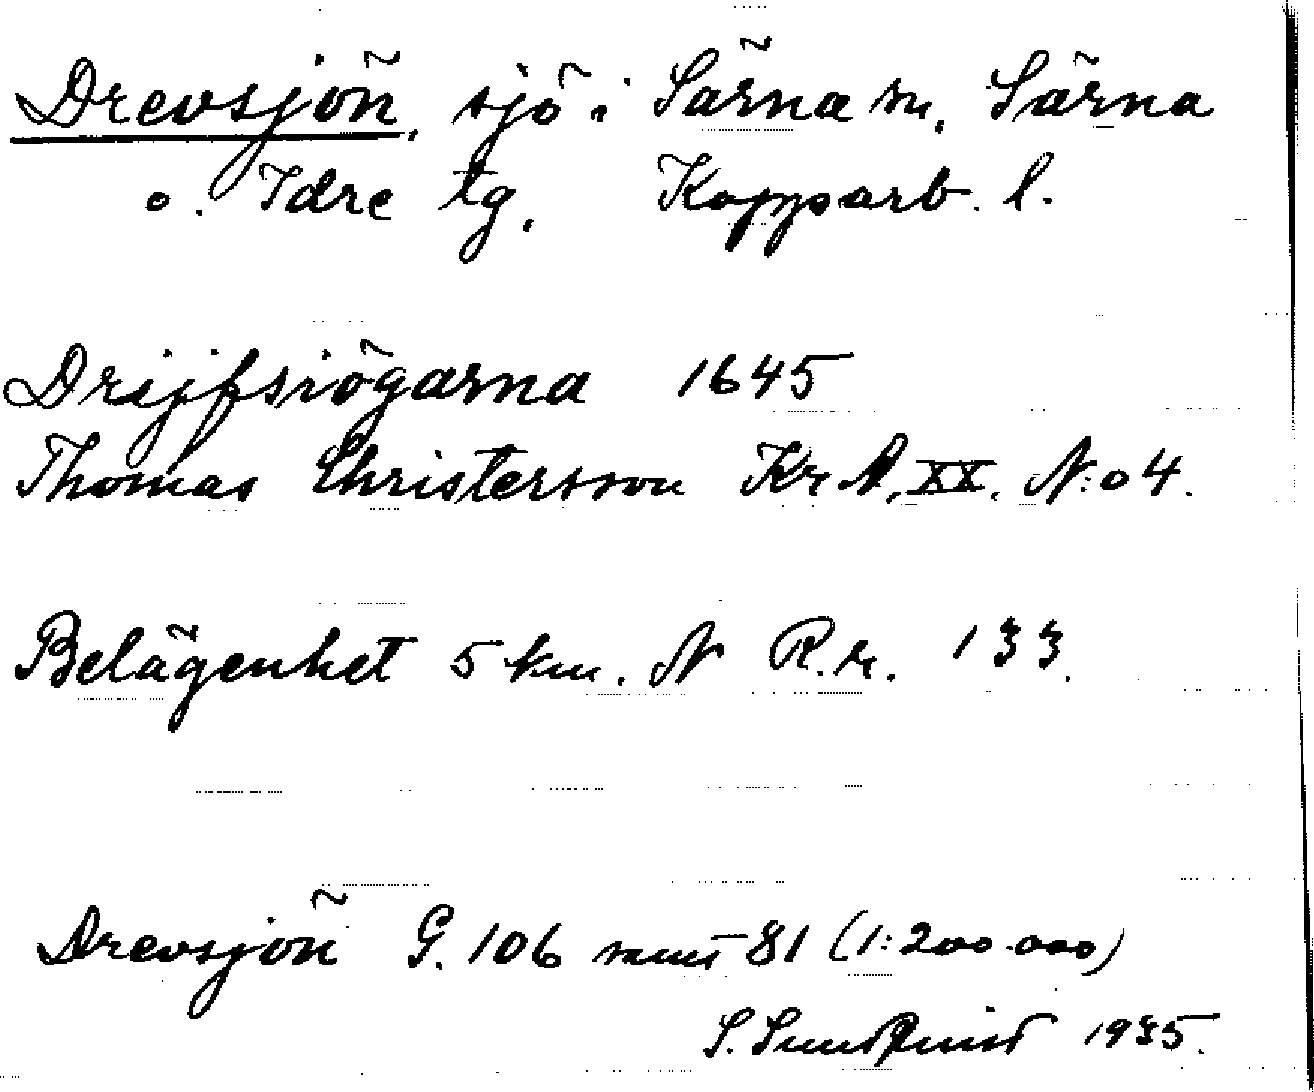 Drevsjön, sjö i Särna sn, Särna
o. Idre tg, Kopparb. l.
Drijfsiögarna 1645
Thomas Christersson Kr A, XX, N:o 4.
Belägenhet 5 km. N R.r. 133.
Drevsjön G. 106 samt 81 (1:200.000)
S. Sundquist 1935.